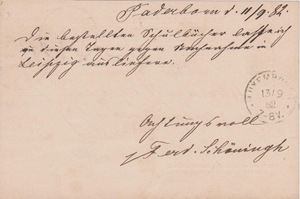 Paderborn d. 11/9. 82.
Die bestellten Schulbücher lasse ich
in diesen Tagen gegen Nachnahme in
Leipzig ausliefern.
13/9
82
Achtungsvoll
Ferd. Schöningh